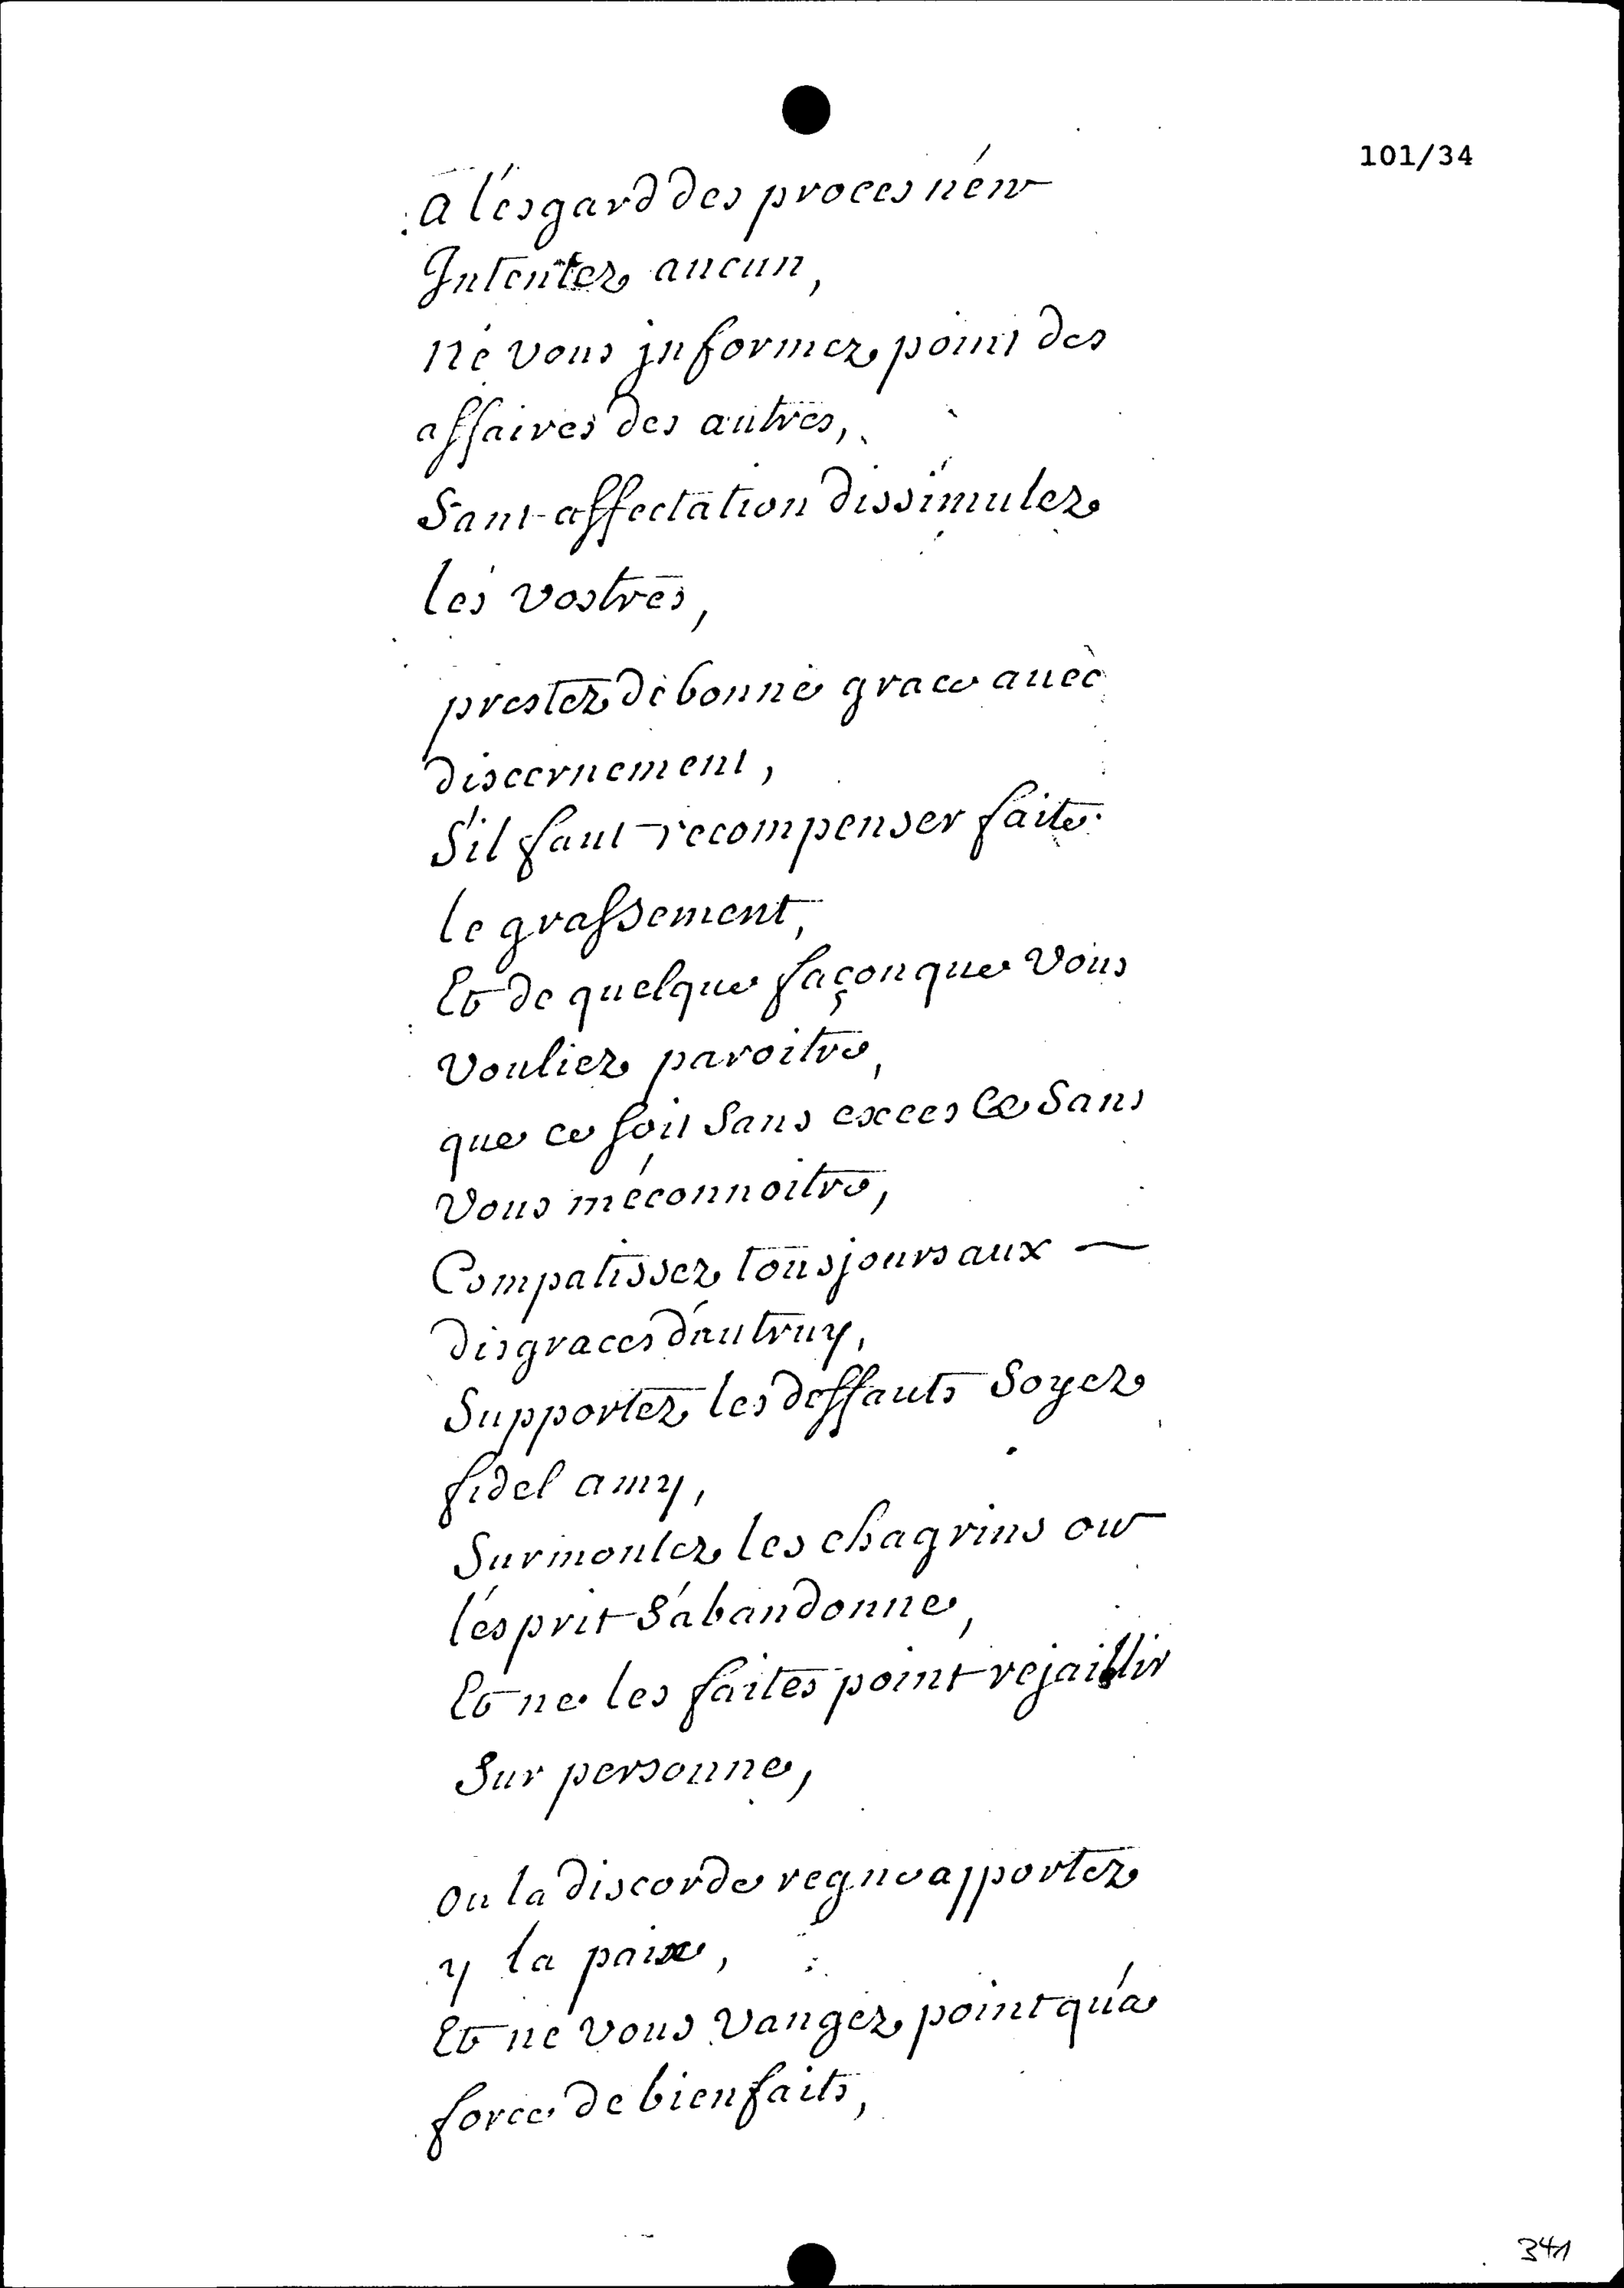 101/34
a l'esgard des proces n'en
Intentez aucun,
Ne vous jnformez point des
affaires des autres,
Sans affectation dissimulez
les vostres,
prestez de bonne grace auec
discernement,
S'il faut recompenser faite
le grassement,
Et de quelque façon que vous
vouliez paroitre,
que ce soit sans exces et sans
vous méconnoitre,
Compatissez tousjours aux
disgraces d'autruy,
Supportez les deffauts soyez
fidel amy,
Surmontez les chagrins ou
l'esprit s'abandonne,
Et ne les faites point rejaillir
Sur personne,
ou la discorde regne apportez
y la paix,
Et ne vous vangez point qu'a
force de bienfaits,
341